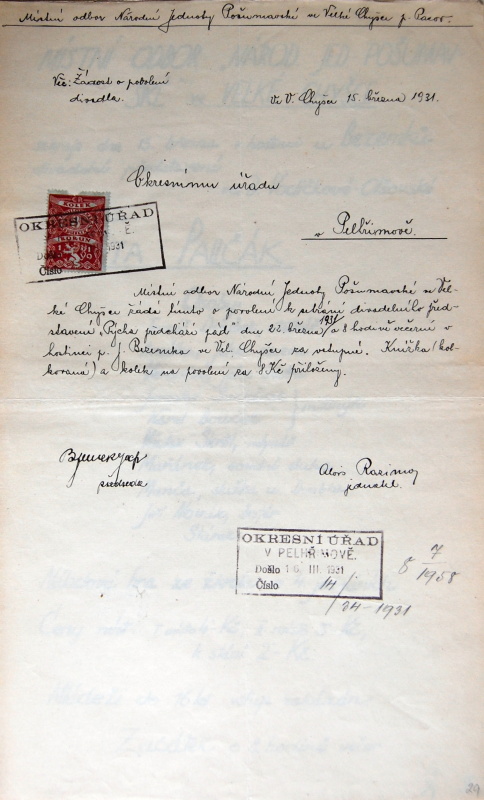 Místní odbor Národní Jednoty Pošumavské ve Velké Chyšce p. Pacov.
Věc: Žádost o povolení
divadla.
Ve V. Chyšce 15. března 1931.
Okresnímu úřadu
v Pelhřimově.
KOLEK
KORUN
OKRESNÍ ÚŘAD
Došlo 1931
Číslo
Místní odbor Národní Jednoty Pošumavské ve Vel-
ké Chyšce žádá tímto o povolení k sehrání divadelního před-
stavení „Pýcha předchází pád" dne 22. března 1931 o 8 hodině večerní v
hostinci p. J. Bezemka ve Vel. Chyšce za vstupné. Knížka (kol-
kovaná) a kolek na povolení za 8 Kč přiloženy.
předseda
Alois Racima
jednatel.
OKRESNÍ ÚŘAD
V PELHŘIMOVĚ.
Došlo 16. III. 1931
Číslo 14/
/24-1931
8 7/1958
29